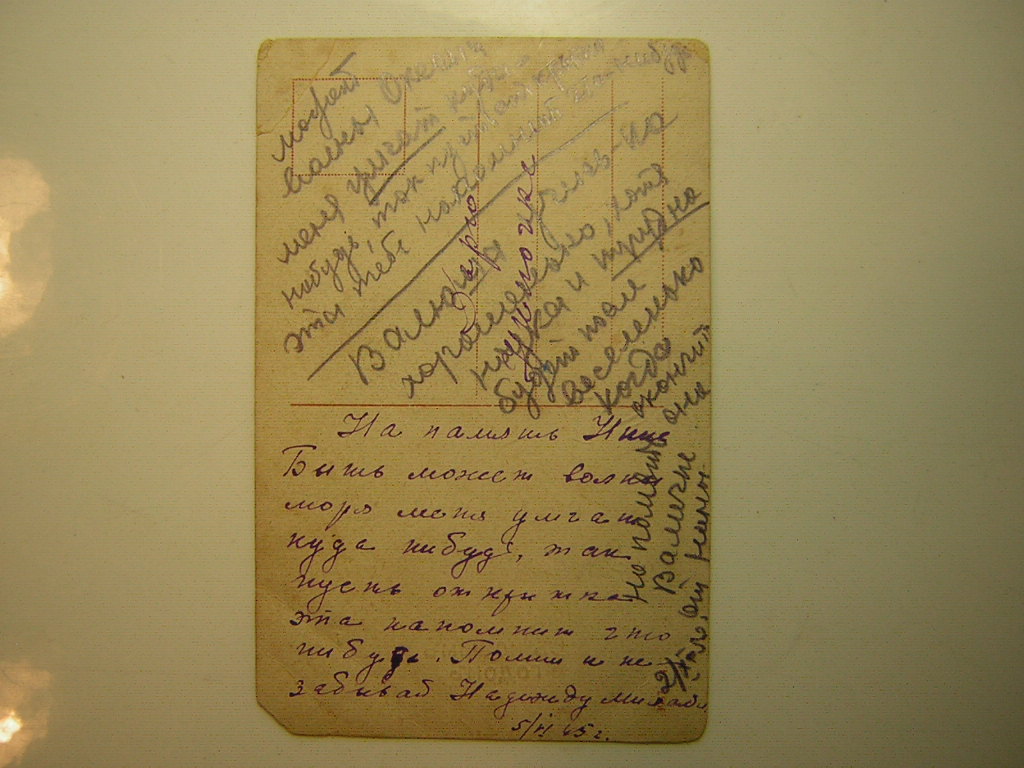 может
волны Океана
меня умчат куда-
нибудь, так пусть открытка
эта тебе напомнит что-нибудь
Валюша учись-ка
хорошенько, хотя
наука и трудна
будет там
веселенько
когда
окончит
она
Зарю
На память Нине
Быть может волны
моря меня умчат
куда нибудь, так
пусть открытка
эта напомнит что
нибудь. Помни и не
забывай Надежду
5/VI 45 г.
На память
Валечке
от Нины